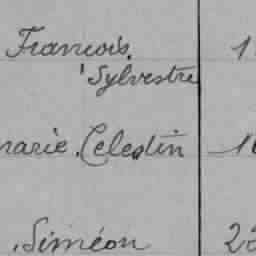 François 1
Sylvestre
marie Celestin 1
Siméon 23